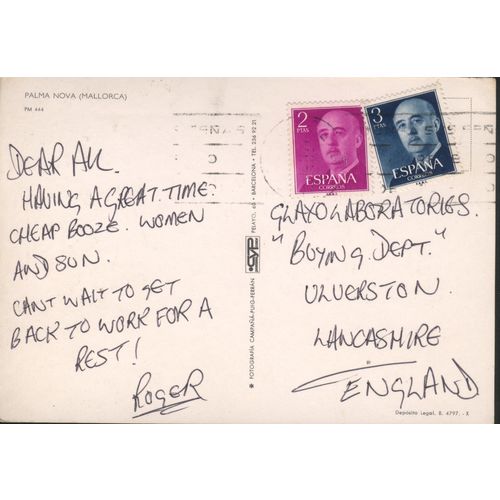 PALMA NOVA (MALLORCA)
PM 444
DEAR ALL.
HAVING A GREAT TIME.
CHEAP BOOZE. WOMEN
AND SUN.
CANT WAIT TO GET
BACK TO WORK FOR A
REST!
ROGER
FOTOGRAFIA CAMPAÑA-PUIG-FERRAN
PELAYO, 60 - BARCELONA - TEL. 236 92 21
2
PTAS
ESPAÑA
CORREOS
3
PTAS
ESPAÑA
CORREOS
GLAXO LABORATORIES.
"BUYING DEPT."
ULVERSTON.
LANCASHIRE
ENGLAND
Depósito Legal, B. 4797. - X